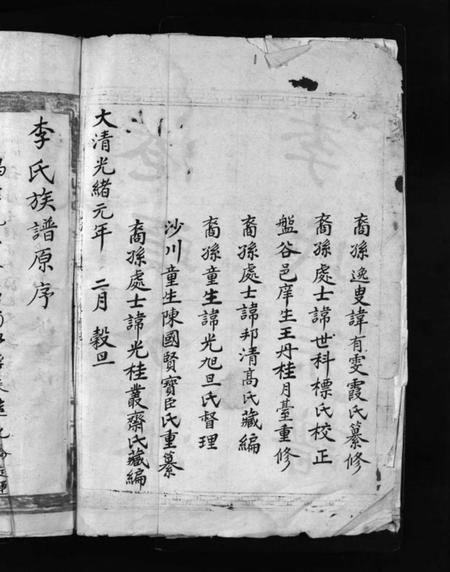 裔孫逸叟諱有雯霞氏纂修
裔孫處士諱世科標氏校正
盤谷邑庠生王丹桂月臺重修
裔孫處士諱邦清高氏藏編
裔孫童生諱光旭旦氏督理
沙川童生陳國賢寶臣氏重纂
裔孫處士諱光桂叢齋氏藏編
大清光緒元年 二月 穀旦
李氏族譜原序